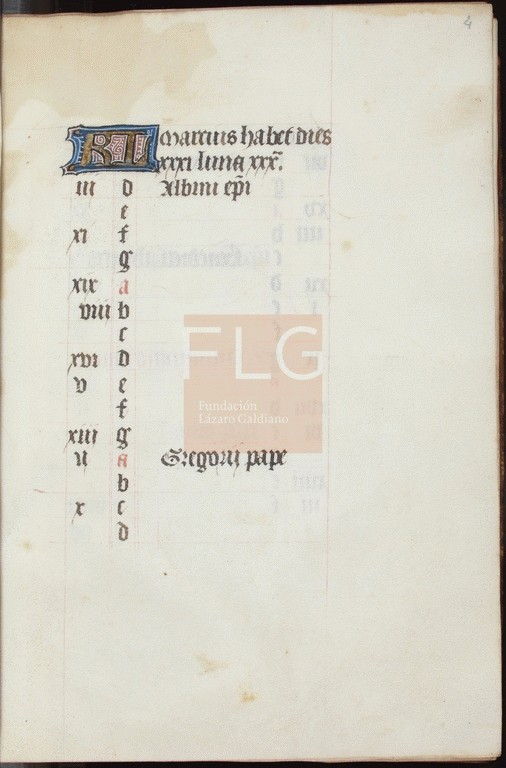 4
KL Marcius habet dies
xxxi luna xxx.
iii d Albini epi
e
xi f
g
xix a
viii b
c
xvi d
v e
f
xiii g
ii a Gregorii pape
b
x c
d
FLG
Fundación
Lázaro Galdiano